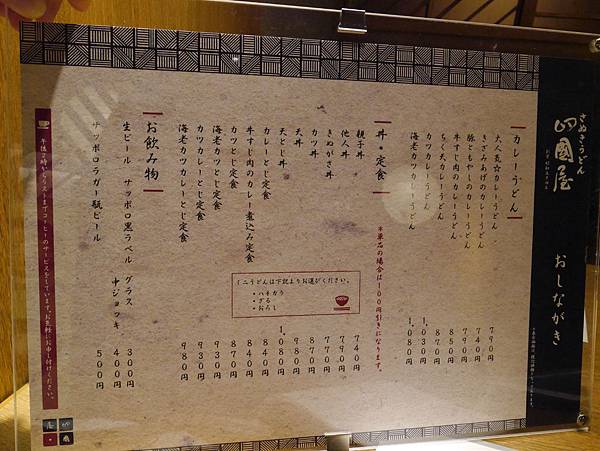 さぬきうどん
四國屋
おしながき
カレーうどん
大人気☆カレーうどん 790円
きざみあげのカレーうどん 740円
豚ともやしのカレーうどん 790円
牛すじ肉のカレーうどん 850円
ちく天カレーうどん 870円
カツカレーうどん 1,030円
海老カツカレーうどん 1,080円
丼・定食
※単品の場合は100円引きになります。
親子丼 740円
他人丼 790円
きぬがさ丼 770円
カツ丼 770円
天丼 950円
天とじ丼 1,080円
カレーとじ定食 840円
牛すじ肉のカレー煮込み定食 840円
カツとじ定食 870円
海老カツとじ定食 930円
カツカレーとじ定食 930円
海老カツカレーとじ定食 980円
ミニうどんは下記よりお選びください。
・ハイカラ
・ざる
・おろし
お飲み物
生ビール サッポロ黒ラベル グラス 300円
中ジョッキ 400円
サッポロラガー瓶ビール 500円
午後2時からラストまでコーヒーのサービスをしています。お気軽にお申し付けください。